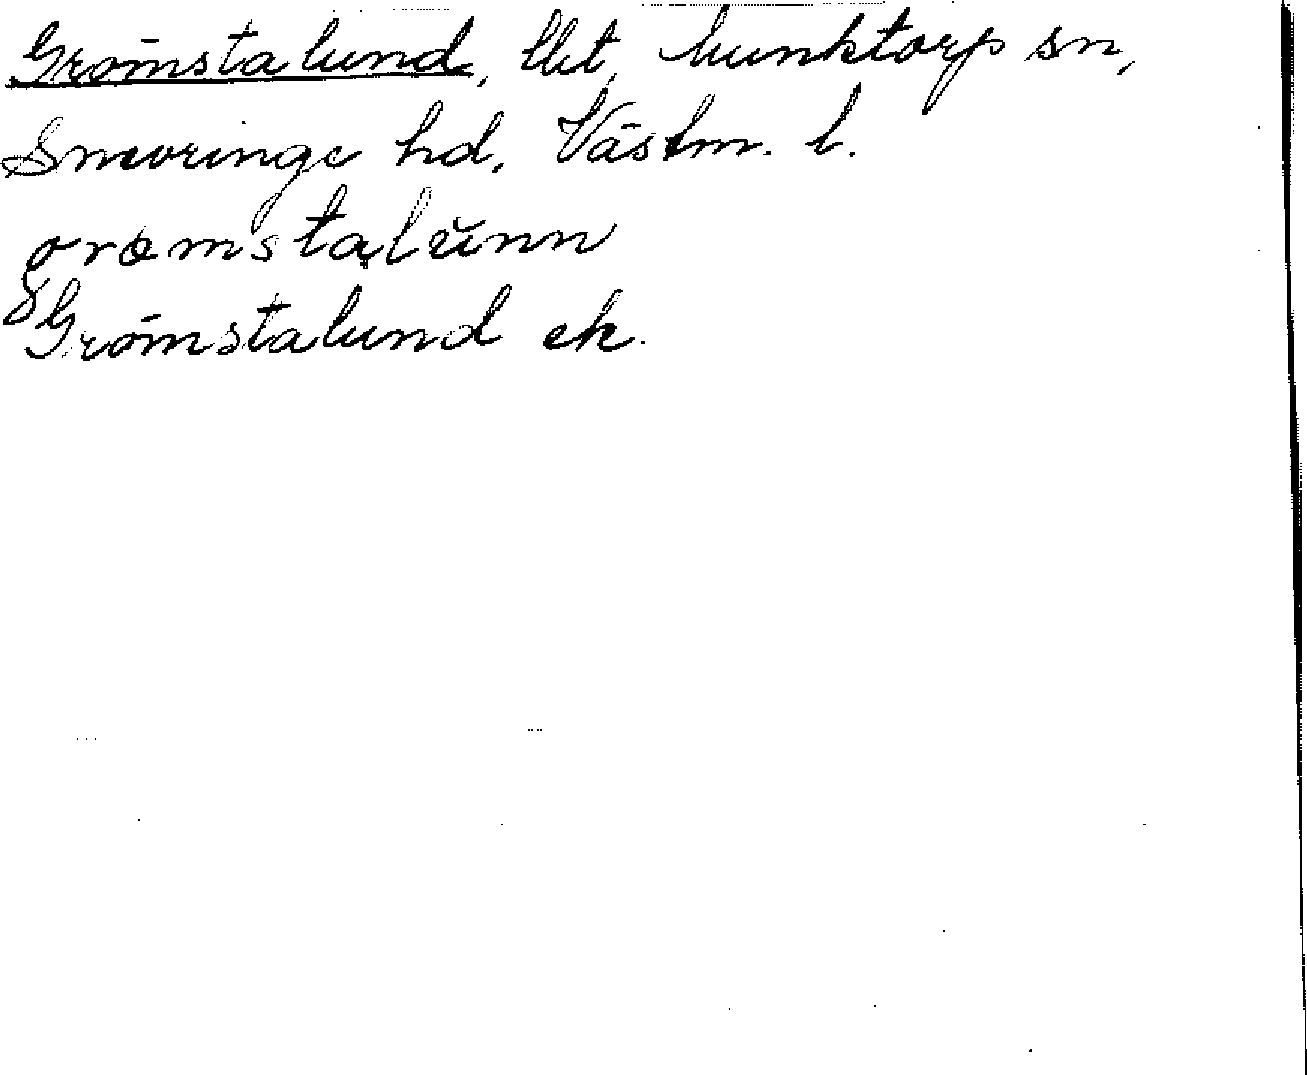 Grömstalund, lht, Munktorp sn,
Snevringe hd. Västm. l.
græmstalŭnn
Grömstalund ek.